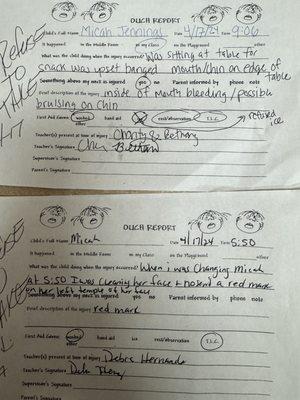 OUCH REPORT
Refuse
TO
TAKE
Child's Full Name Micah Jennings Date 4/17/24 Time 9:06
It happened in the Middle Room in my Class on the Playground other
What was the child doing when the injury occurred? Was sitting at table for
snack was upset banged mouth/chin on edge of
table
Something above my neck is injured yes no Parent informed by phone note
Brief description of the injury inside of mouth bleeding / possible
bruising on chin
First Aid Given: washed band aid ice rest/observation T.L.C. refused
ice
Teacher(s) present at time of injury Charity & Bethany
Teacher's Signature
Supervisor's Signature
Parent's Signature
OUCH REPORT
Child's Full Name Micah Date 4/17/24 Time 5:50
It happened in the Middle Room in my Class on the Playground other
What was the child doing when the injury occurred? When i was changing Micah
at 5:50 I was cleaning her face + noticed a red mark
on her left temple of her face
Something above my neck is injured yes no Parent informed by phone note
Brief description of the injury red mark
First Aid Given: washed band aid ice rest/observation T.L.C.
Teacher(s) present at time of injury Debra
Teacher's Signature
Supervisor's Signature
Parent's Signature